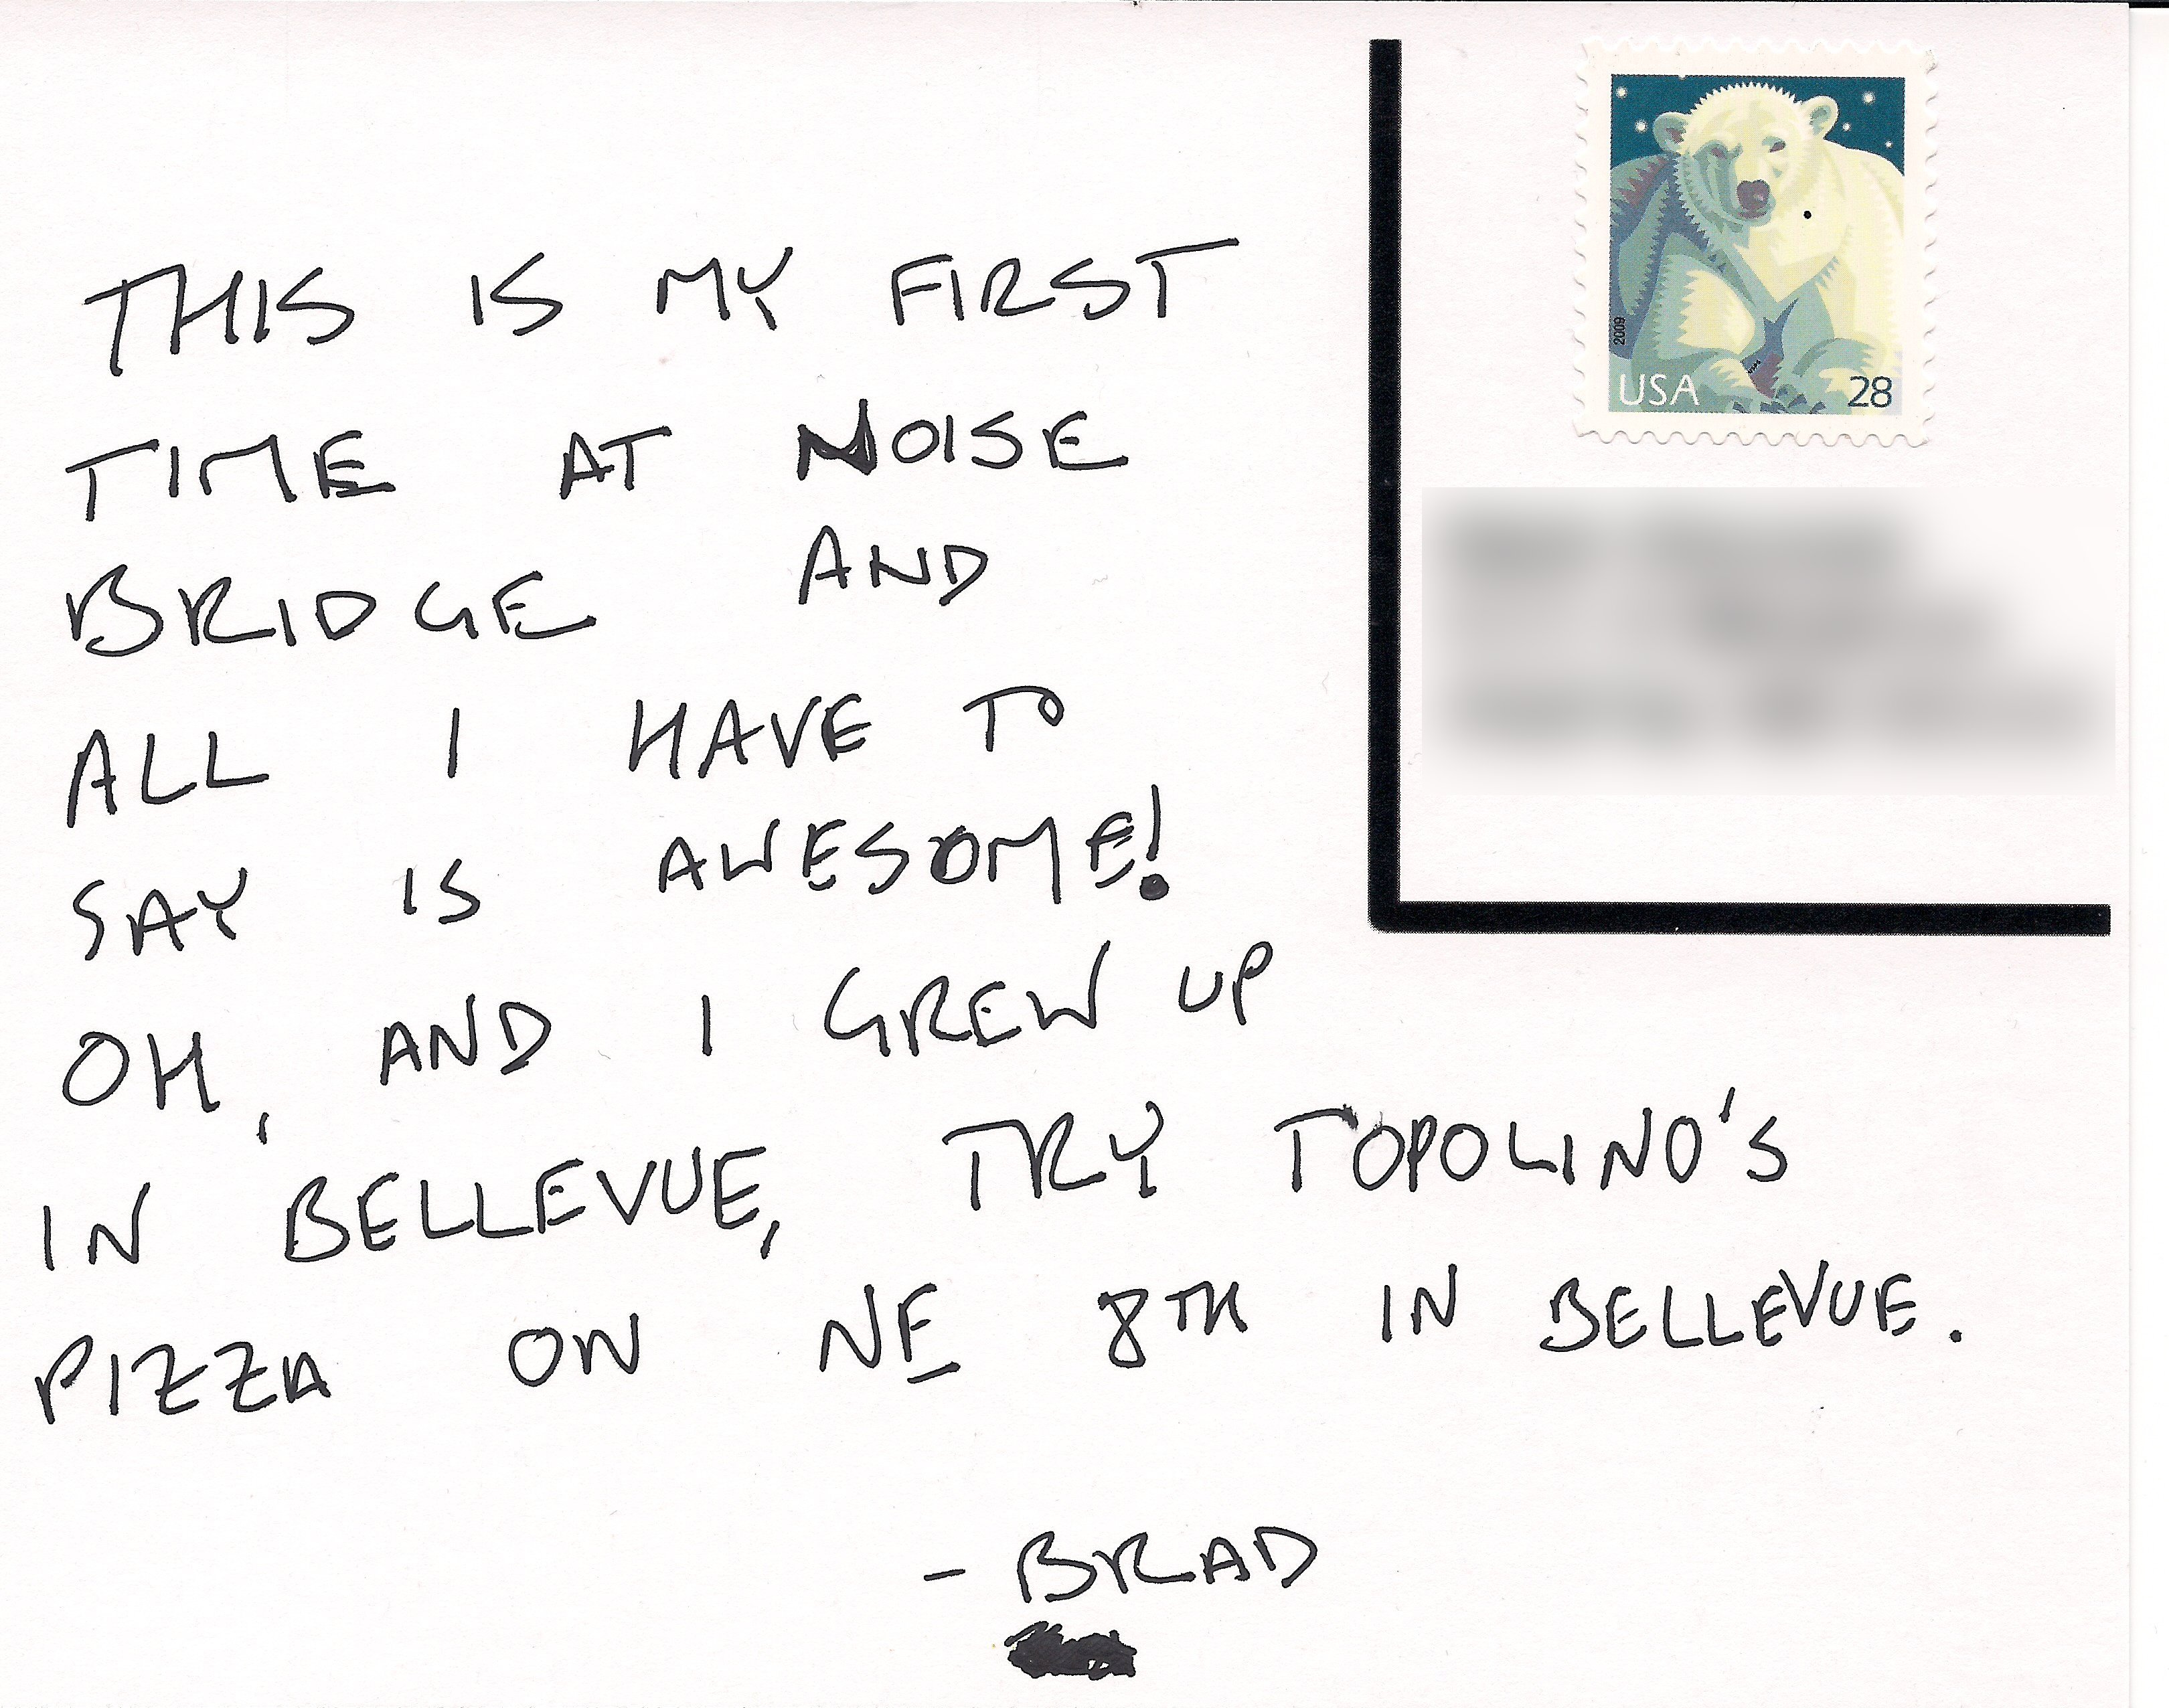 THIS IS MY FIRST
TIME AT NOISE
BRIDGE AND
ALL I HAVE TO
SAY IS AWESOME!
OH, AND I GREW UP
IN BELLEVUE, TRY TOPOLINO'S
PIZZA ON NE 8TH IN BELLEVUE.
- BRAD
2009
USA 28